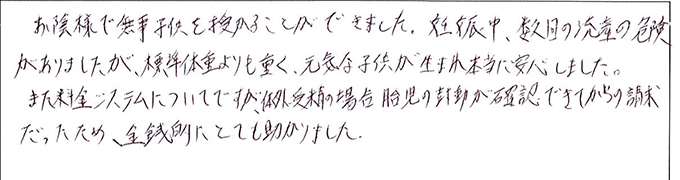 お陰様で無事子供を授かることができました。妊娠中、数回の流産の危険
がありましたが、標準体重よりも重く、元気な子供が生まれ本当に安心しました。
また料金システムについてですが、体外受精の場合 胎児の鼓動が確認できてからの請求
だったため、金銭的にとても助かりました。